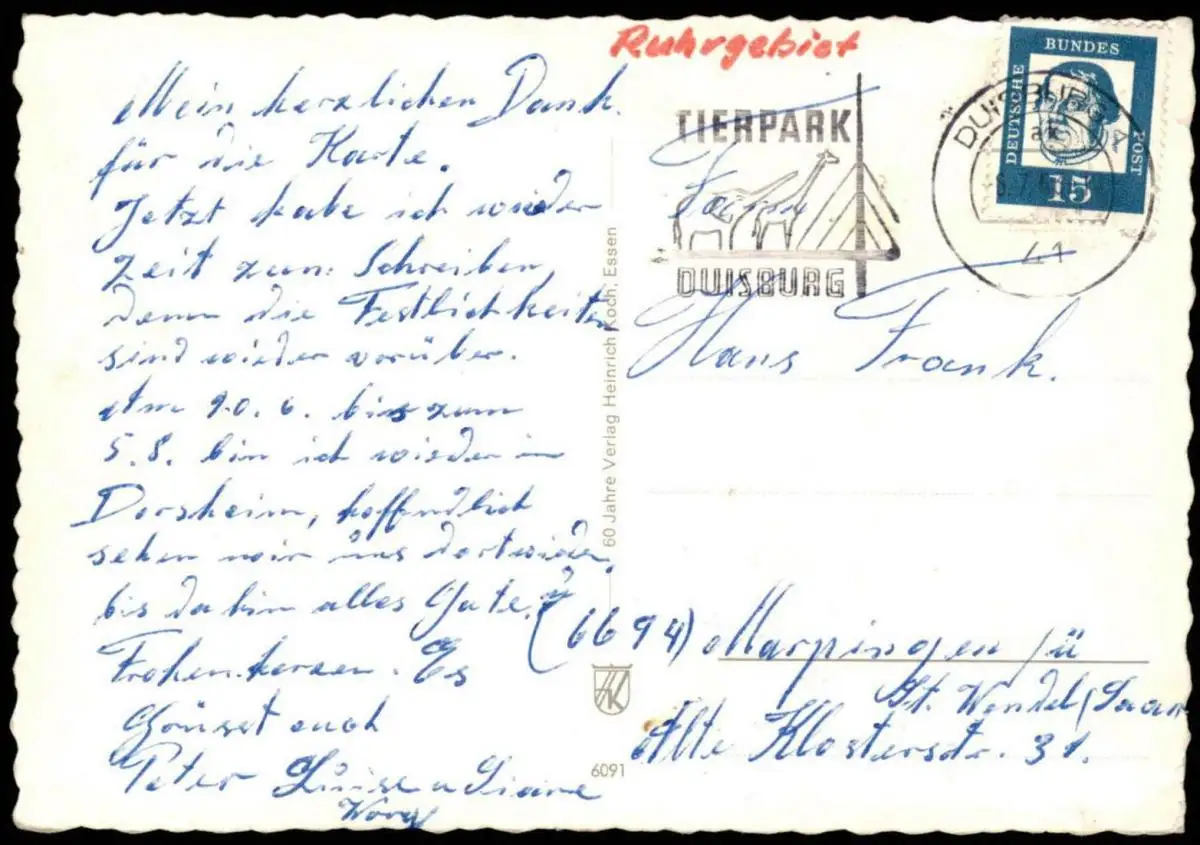 Mein herzlichen Dank
für die Karte.
Jetzt habe ich wieder
zeit zum Schreiben,
denn die Festlichkeiten
sind wieder vorüber.
Am 10.6. bis zum
5.8. bin ich wieder in
Dorsheim, hoffendlich
sehen wir uns dort wieder.
bis dahin alles Gute.
Es
Grüset euch
Peter Luise u Liane
Ruhrgebiet
TIERPARK
DUISBURG
DUISBURG
41
DEUTSCHE BUNDES POST
15
Fam
Hans Frank.
(6694) Marpingen /ü
St. Wendel (Saar
Alte Klosterstr. 31.
60 Jahre Verlag Heinrich Koch, Essen
HK
6091